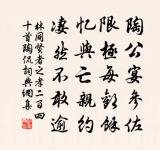 陶公宴參佐
限極每歡餘
憶與亡親約
淒然不敢逾
林同賢者之孝二百四
十首陶侃詞典網集